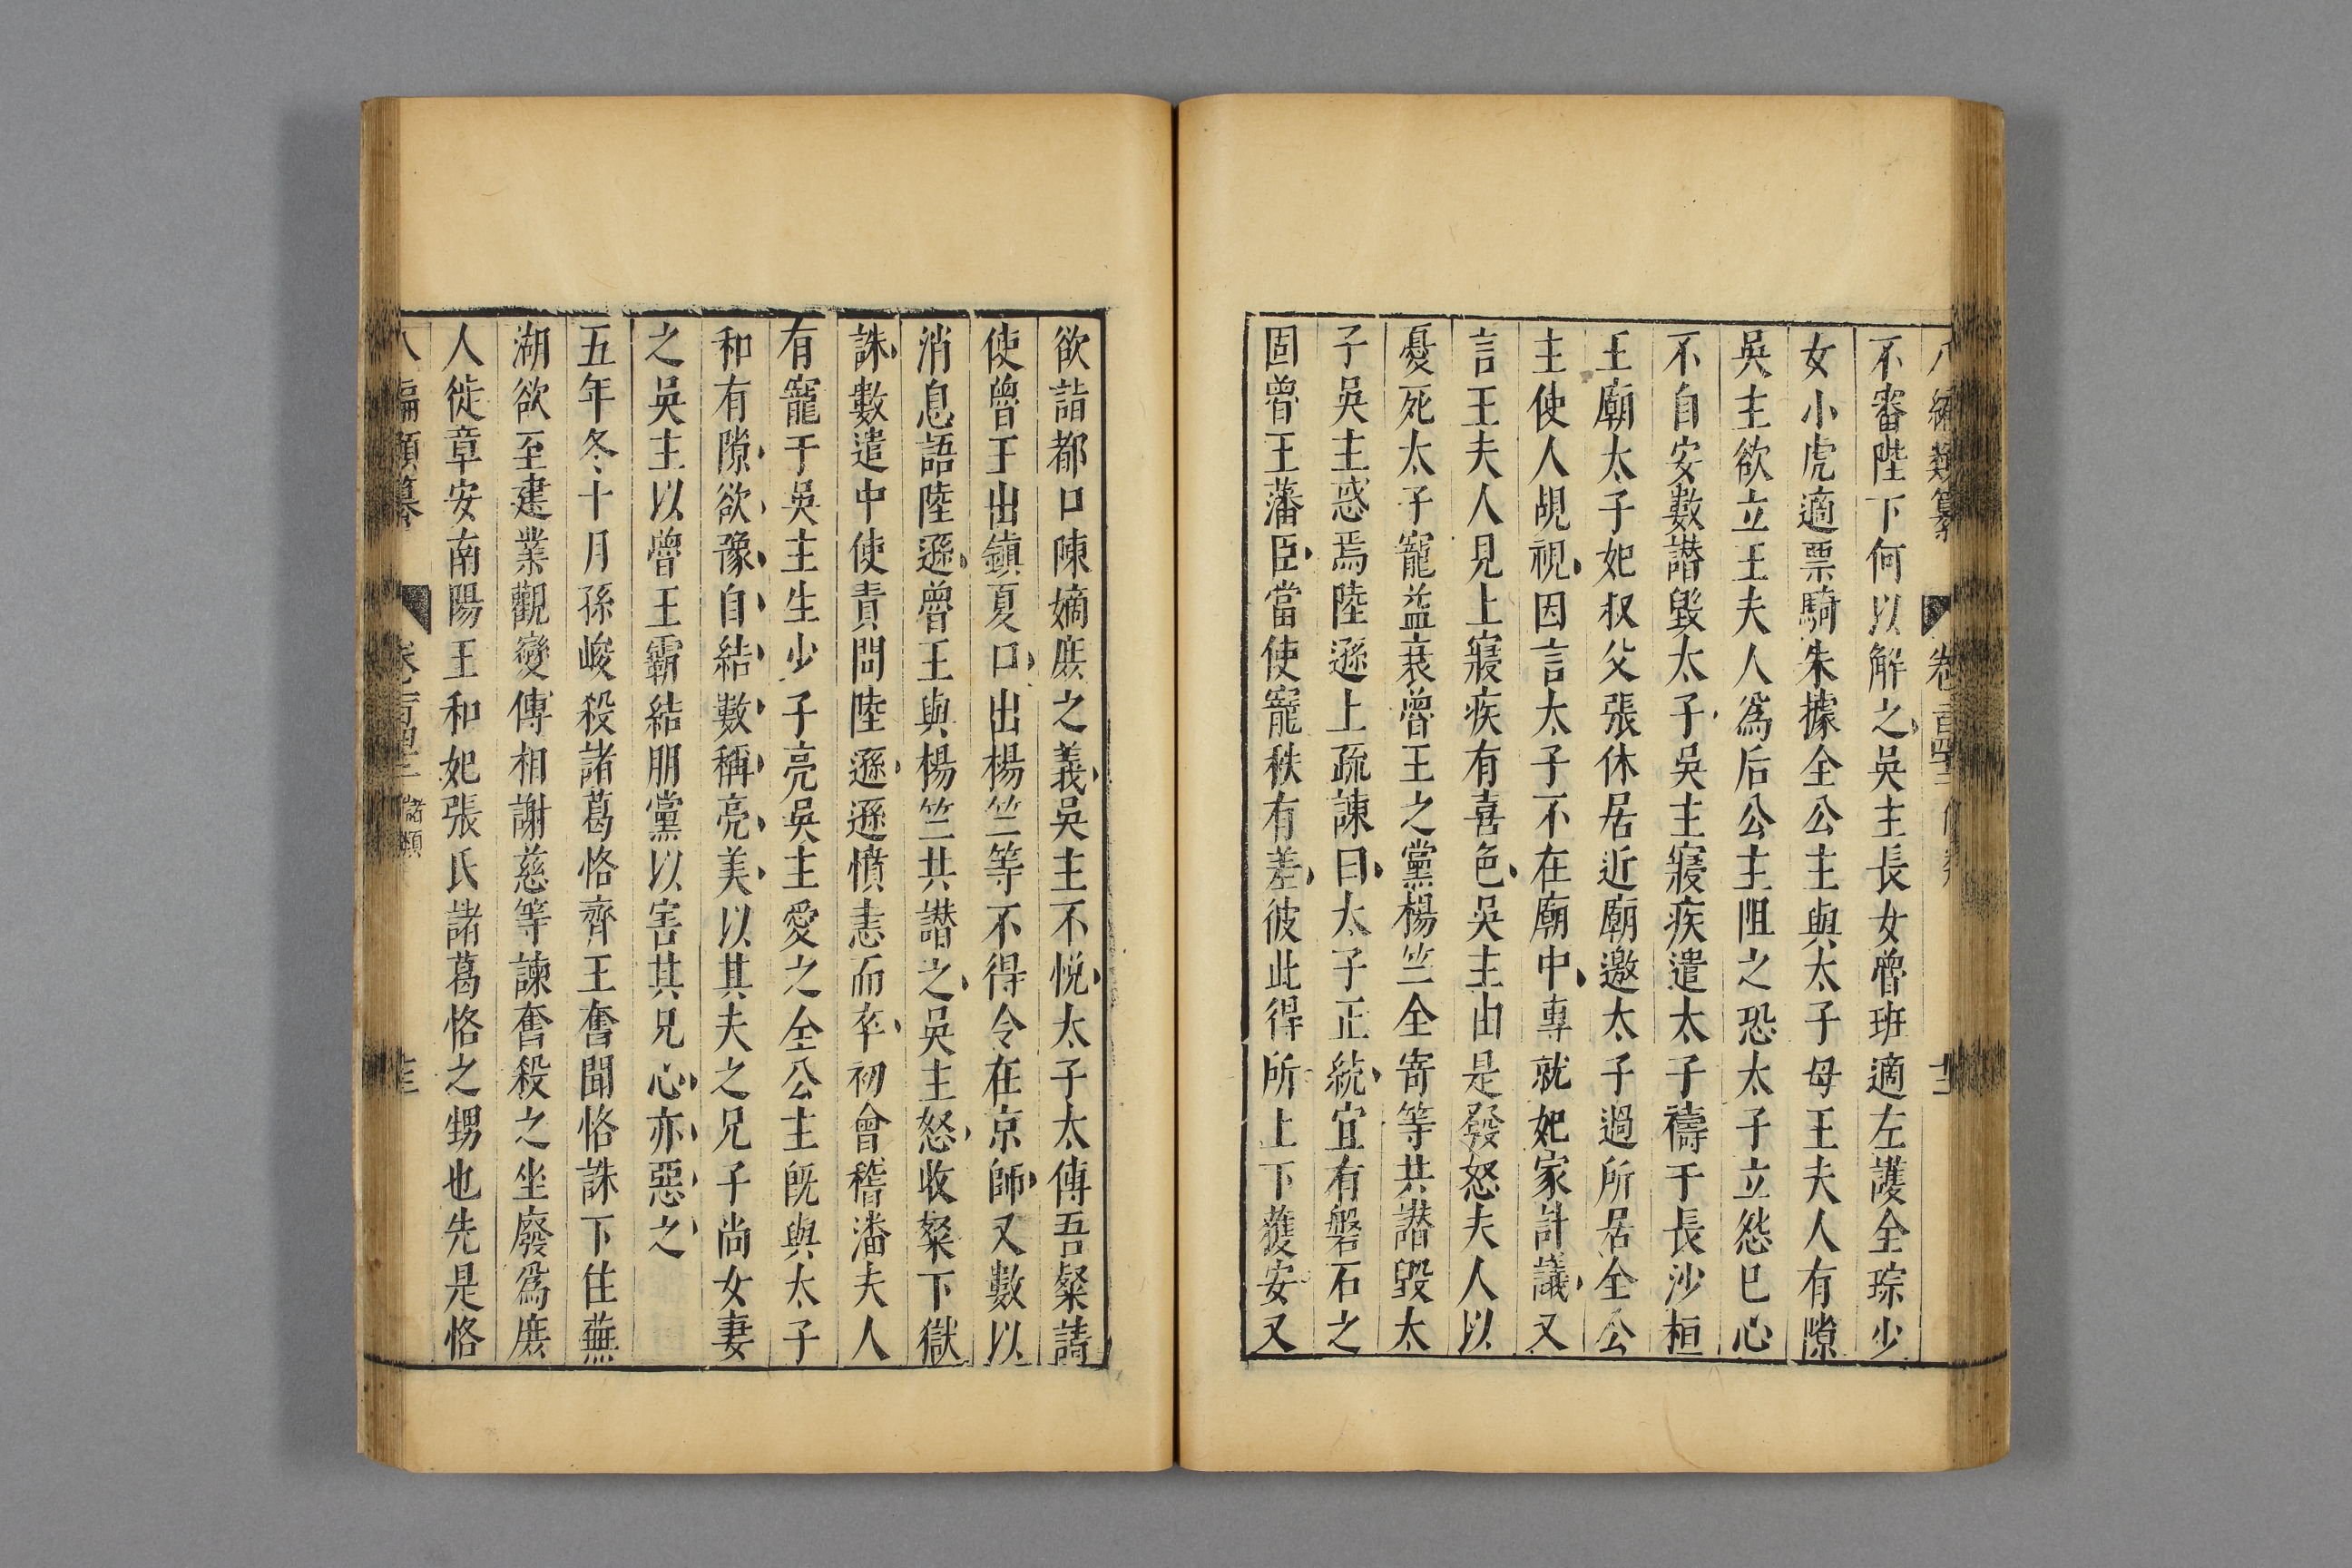 不審陛下何以解之吳主長女魯班適左護全琮少
女小虎適票騎朱據全公主與太子母王夫人有隙
吳主欲立王夫人爲后公主阻之恐太子立怨已心
不自安數譖毀太子吳主寢疾遣太子禱于長沙桓
王廟太子妃叔父張休居近廟邀太子過所居全公
主使人覘視因言太子不在廟中專就妃家計議又
言王夫人見上寢疾有喜色吳主由是發怒夫人以
憂死太子寵益衰魯王之黨楊竺全寄等共譖毀太
子吳主惑焉陸遜上疏諫曰太子正統宜有磐石之
固魯王藩臣當使寵秩有差彼此得所上下獲安又
欲詣都口陳嫡庶之義吳主不悅太子太傅吾粲請
使魯王出鎮夏口出楊竺等不得令在京師又數以
消息語陸遜魯王與楊竺共譖之吳主怒收粲下獄
誅數遣中使責問陸遜遜憤恚而卒初會稽潘夫人
有寵于吳主生少子亮吳主愛之全公主旣與太子
和有隙欲豫自結數稱亮美以其夫之兄子尚女妻
之吳主以魯王霸結朋黨以害其兄心亦惡之
五年冬十月孫峻殺諸葛恪齊王奮聞恪誅下住蕪
湖欲至建業觀變傅相謝慈等諫奮殺之坐廢爲庶
人徙章安南陽王和妃張氏諸葛恪之甥也先是恪
八編類纂 儲類